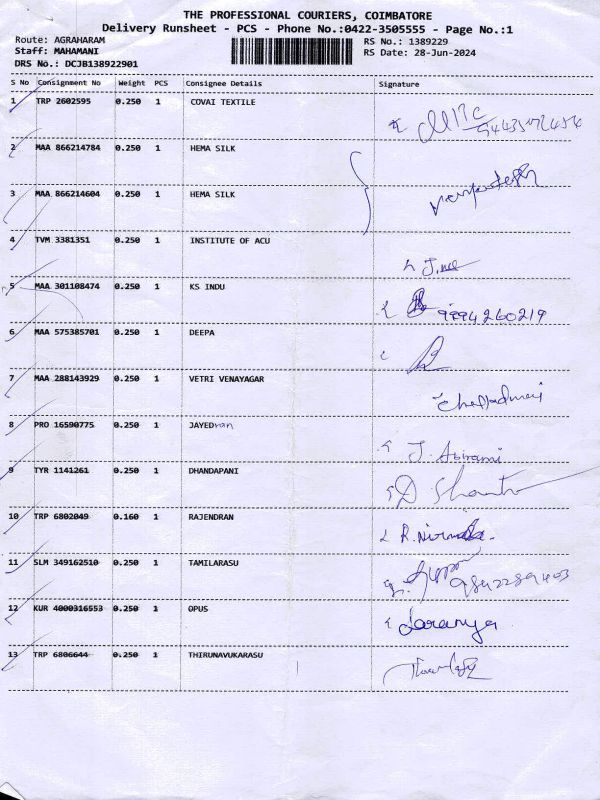 THE PROFESSIONAL COURIERS, COIMBATORE
Delivery Runsheet - PCS - Phone No.:0422-3505555 - Page No.:1
Route: AGRAHARAM RS No.: 1389229
Staff: MAHAMANI RS Date: 28-Jun-2024
DRS No.: DCJB138922901
S No Consignment No Weight PCS Consignee Details Signature
1 TRP 2602595 0.250 1 COVAI TEXTILE
2 MAA 866214784 0.250 1 HEMA SILK
3 MAA 866214604 0.250 1 HEMA SILK
4 TVM 3381351 0.250 1 INSTITUTE OF ACU
5 MAA 301108474 0.250 1 KS INDU 9994260219
6 MAA 575385701 0.250 1 DEEPA
7 MAA 288143929 0.250 1 VETRI VENAYAGAR
8 PRO 16590775 0.250 1 JAYEDran J. Abirami
9 TYR 1141261 0.250 1 DHANDAPANI
10 TRP 6802049 0.160 1 RAJENDRAN
11 SLM 349162510 0.250 1 TAMILARASU
12 KUR 4000316553 0.250 1 OPUS
13 TRP 6806644 0.250 1 THIRUNAVUKARASU